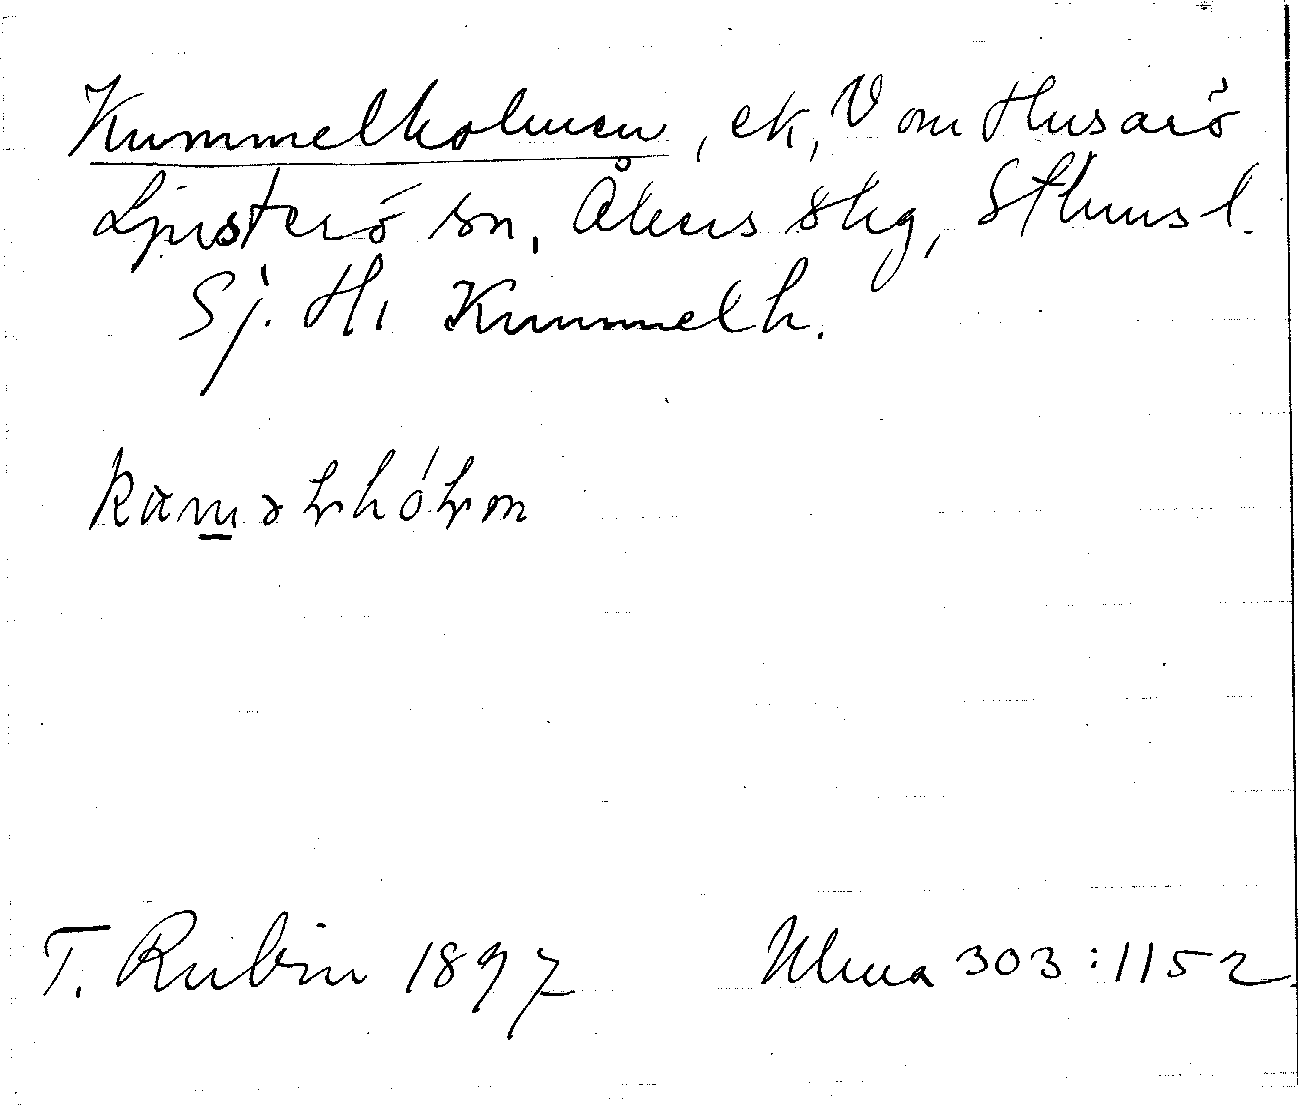 Kummelholmen, ek, V om Husarö
Ljusterö sn, Åkers skg, Sthms l.
Sj. H1 Kummelh.
T. Rubin 1897 Ulma 303:1152